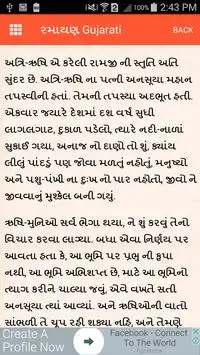 2:43 PM
રમાયણ Gujarati
BACK
અત્રિ-ઋષિ એ કરેલી રામજી ની સ્તુતિ અતિ
સુંદર છે. અત્રિ-ઋષિ ના પત્ની અનસૂયા મહાન
તપસ્વીની હતાં. તેમની તપસ્યા અદભૂત હતી.
એકવાર જયારે દેશમાં દશ વર્ષ સુધી
લાગલગાટ, દુકાળ પડેલો, ત્યારે નદી-નાળાં
સુકાઈ ગયા, અનાજ નો દાણો તો શું, ક્યાંય
લીલું પાંદડું પણ જોવા મળતું નહોતું, મનુષ્યો
અને પશુ-પંખી ના દુઃખ નો પાર નહોતો, જીવો ને
જીવવાનું મુશ્કેલ બની ગયું.
ઋષિ-મુનિઓ સર્વ ભેગા થયા, ને શું કરવું તેનો
વિચાર કરવા લાગ્યા. બધા એવા નિર્ણય પર
આવતા હતા કે, આ ભૂમિ પર પ્રભુ ની કૃપા
નથી, આ ભૂમિ અભિશપ્ત છે, માટે આ ભૂમિનો
ત્યાગ કરીને ચાલ્યા જવું, એવે વખતે સતી
અનસૂયા ત્યાં આવ્યાં. અને ઋષિઓની વાતો
સાંભળી તે ચૂપ રહી શક્યા નહિ, અને તેમણે
Create A
Profile Now
Facebook - Connect
To The World